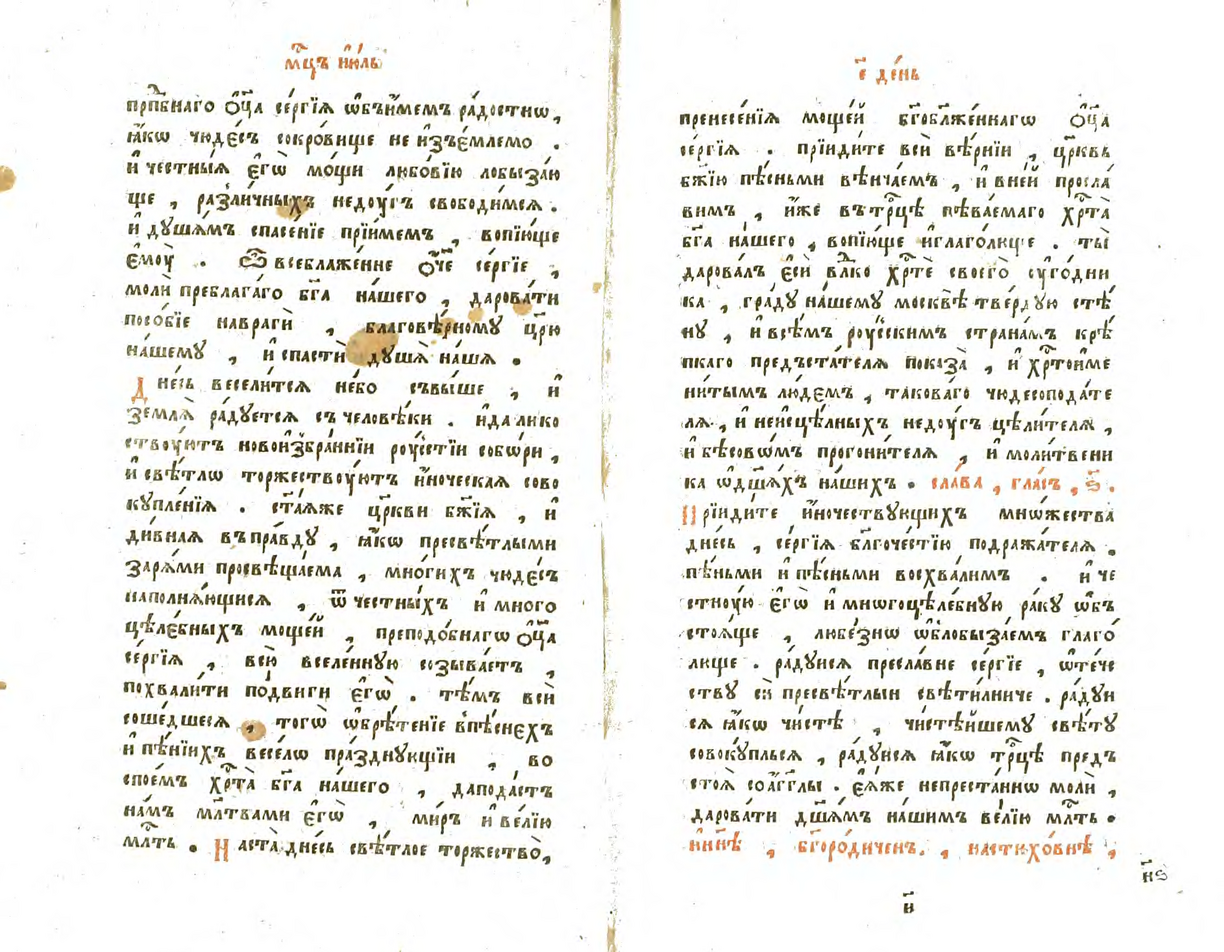 мⷭ҇цъ ѝю́ль
прпⷣбнаго ѻ҆ц҃а се́ргїѧ ѡ҆бъи́мемъ ра́достнѡ,
ꙗ҆́кѡ чюде́съ сокро́вище не и҆зъе́млемо .
и҆ честны́ѧ є҆гѡ̀ мо́щи любо́вїю лобыза́ю
ще , разли́чныхъ недоу́гъ свободи́мсѧ .
и҆ душа́мъ спасе́нїе прїи́мемъ , вопїю́ще
є҆моу̀ . ѽ всеблаже́нне ѻ҆́ч҃е се́ргїе ,
молѝ преблага́го бг҃а на́шего , дарова́ти
посо́бїе наврагѝ , благовѣ́рному цр҃ю
на́шему , и҆ спастѝ ду́шѧ на́шѧ .
Дне́сь весели́тсѧ не́бо съвы́ше , и҆
землѧ̀ ра́дуетсѧ съ человѣ́ки . и҆да лико
ствоу́ютъ новои҆збра́ннїи роу́сстїи собо́ри ,
и҆ свѣ́тлѡ торжествоу́ютъ и҆́ноческаѧ сово
купле́нїѧ . ст҃а́ѧже цр҃кви бж҃їѧ , и҆
ди́внаѧ въпра́вду , ꙗ҆́кѡ пресвѣ́тлыми
зарѧ́ми просвѣща́ема , мно́гихъ чюде́съ
наполнѧ́ющисѧ , ѿ честны́хъ и҆ много
цѣле́бныхъ моще́й , преподо́бнагѡ ѻ҆ц҃а
се́ргїѧ , всю̀ вселе́нную созыва́етъ ,
похвали́ти по́двиги є҆гѡ̀ . тѣ́мъ всѝ
соше́дшесѧ , тогѡ̀ ѡ҆брѣ́тенїе впѣ́снехъ
и҆ пѣ́нїихъ ве́селѡ пра́зднующїи , во
спое́мъ хрⷭ҇та̀ бг҃а на́шего , дапода́стъ
на́мъ млт҃вами є҆гѡ̀ , ми́ръ и҆ ве́лїю
млⷭ҇ть . Наста̀ дне́сь свѣ́тлое торжество̀,
є҃ де́нь
пренесе́нїѧ моще́й бг҃обл҃же́ннагѡ ѻ҆ц҃а
се́ргїѧ . прїиди́те всѝ вѣ́рнїи , цр҃квь
бж҃їю пѣ́сньми вѣнча́емъ , и҆ вне́й просла́
вимъ , и҆́же втрⷪ҇цѣ пѣва́емаго хрⷭ҇та̀
бг҃а на́шего , вопїю́ще и҆глаго́люще . ты̀
дарова́лъ є҆сѝ влⷣко хрⷭ҇тѐ своего̀ су́годни
ка , гра́ду на́шему москвѣ̀ тве́рдую стѣ́
ну , и҆ всѣ́мъ роу́сскимъ страна́мъ крѣ́
пкаго предъста́телѧ показа̀ , и҆ хрⷭ҇тои҆ме
ни́тымъ лю́демъ , такова́го чюдесопода́те
лѧ , и҆ неисцѣ́лныхъ недоу́гъ цѣли́телѧ ,
и҆ бѣсовѡ́мъ прогони́телѧ , и҆ моли́твени
ка ѡ҆дш҃а́хъ на́шихъ . сла́ва , гла́съ , ѕ҃.
Прїиди́те и҆́ночествующихъ мнѡ́жества
дне́сь , се́ргїѧ бл҃гоче́стїю подража́телѧ .
пѣ́ньми и҆ пѣ́сньми восхва́лимъ . и҆ че
стноу́ю є҆гѡ̀ и҆ мнѡгоцѣле́бную ра́ку ѡ҆бъ
стоѧ́ще , любе́знѡ ѡ҆блобыза́емъ глаго́
люще . ра́дуисѧ пресла́вне се́ргїе , ѡ҆те́че
ству сѝ пресвѣ́тлыи свѣти́лниче . ра́дуи
сѧ ꙗ҆́кѡ чи́стѣ , чистѣ́йшему свѣ́ту
совоку́пльсѧ , ра́дуисѧ ꙗ҆́кѡ трⷪ҇цѣ пре́дъ
стоѧ̀ соа҆́гг҃лы . є҆ѧ́же непреста́ннѡ молѝ ,
дарова́ти дш҃а́мъ на́шимъ ве́лїю млⷭ҇ть .
и҆ нн҃ѣ , бг҃оро́диченъ. , настихо́внѣ ,
и҃
н҃ѕ